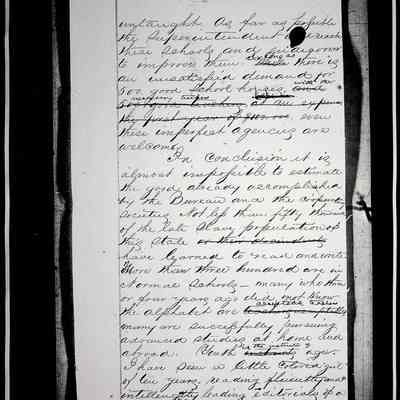 untaught. As far as possible
the Superintendent
these schools and endeavor
to improve them. So long as there is
an unsatisfied demand for
500 good School houses, with the
at an expense
even
these imperfect agencies are
welcome.
In Conclusion it is
almost impossible to estimate
the good already accomplished
by the Bureau and the
Societies. Not less than fifty thousand
of the late Slave population of
this State or their
have learned to read and write.
More than three hundred are in
Normal Schools — many who three
or four years ago did not know
the alphabet are
many are successfully pursuing
advanced studies at home and
abroad.
I have seen a little Colored girl
of ten years, reading fluently and
intelligently leading editorials of a